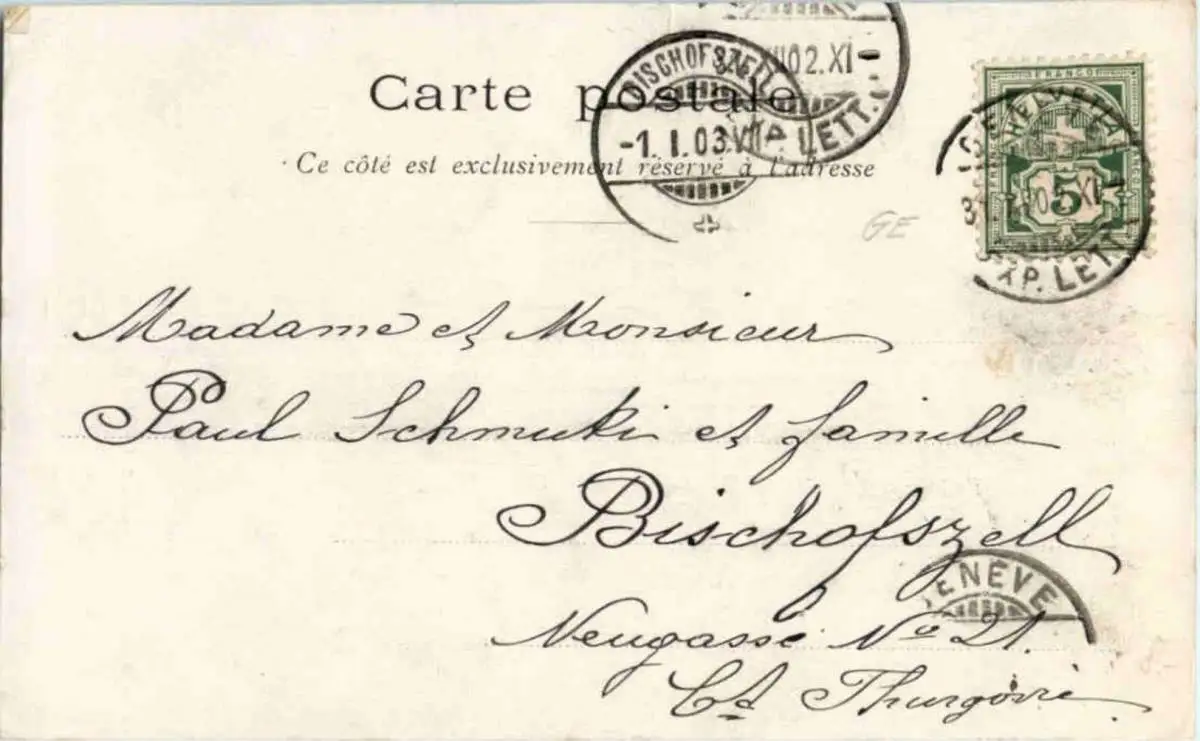 Carte postale
Ce côté est exclusivement réservé à l'adresse
BISCHOFSZELL
-1.I.03.VII
02.XI-
EXP. LETT.
HELVETIA
FRANCO
5
XI-
EXP. LETT.
GE
Madame et Monsieur
Paul Schmuki et famille
Bischofszell
GENÈVE
Neugasse No 21.
Ct Thurgovie
8.-